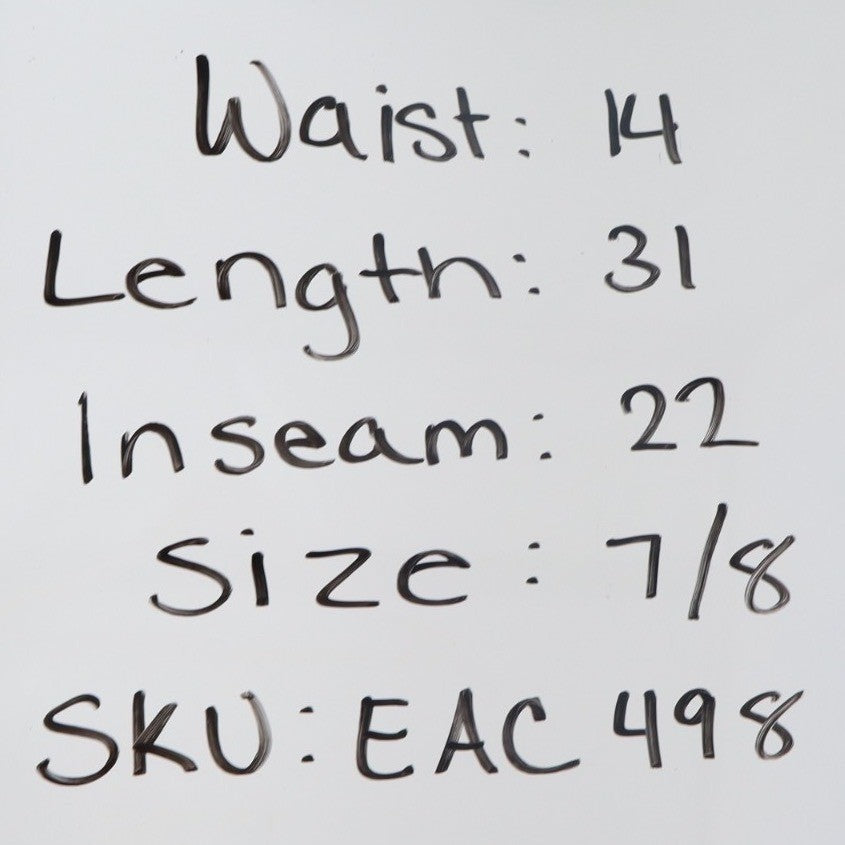 Waist: 14
Length: 31
Inseam: 22
Size: 7/8
SKU: EAC 498